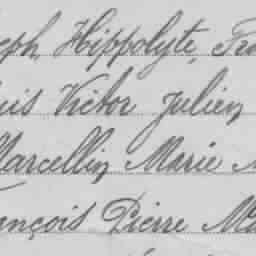 eph, Hippolyte, Fra
uis Victor Julien
Marcellin Marie
ançois Pierre Ma